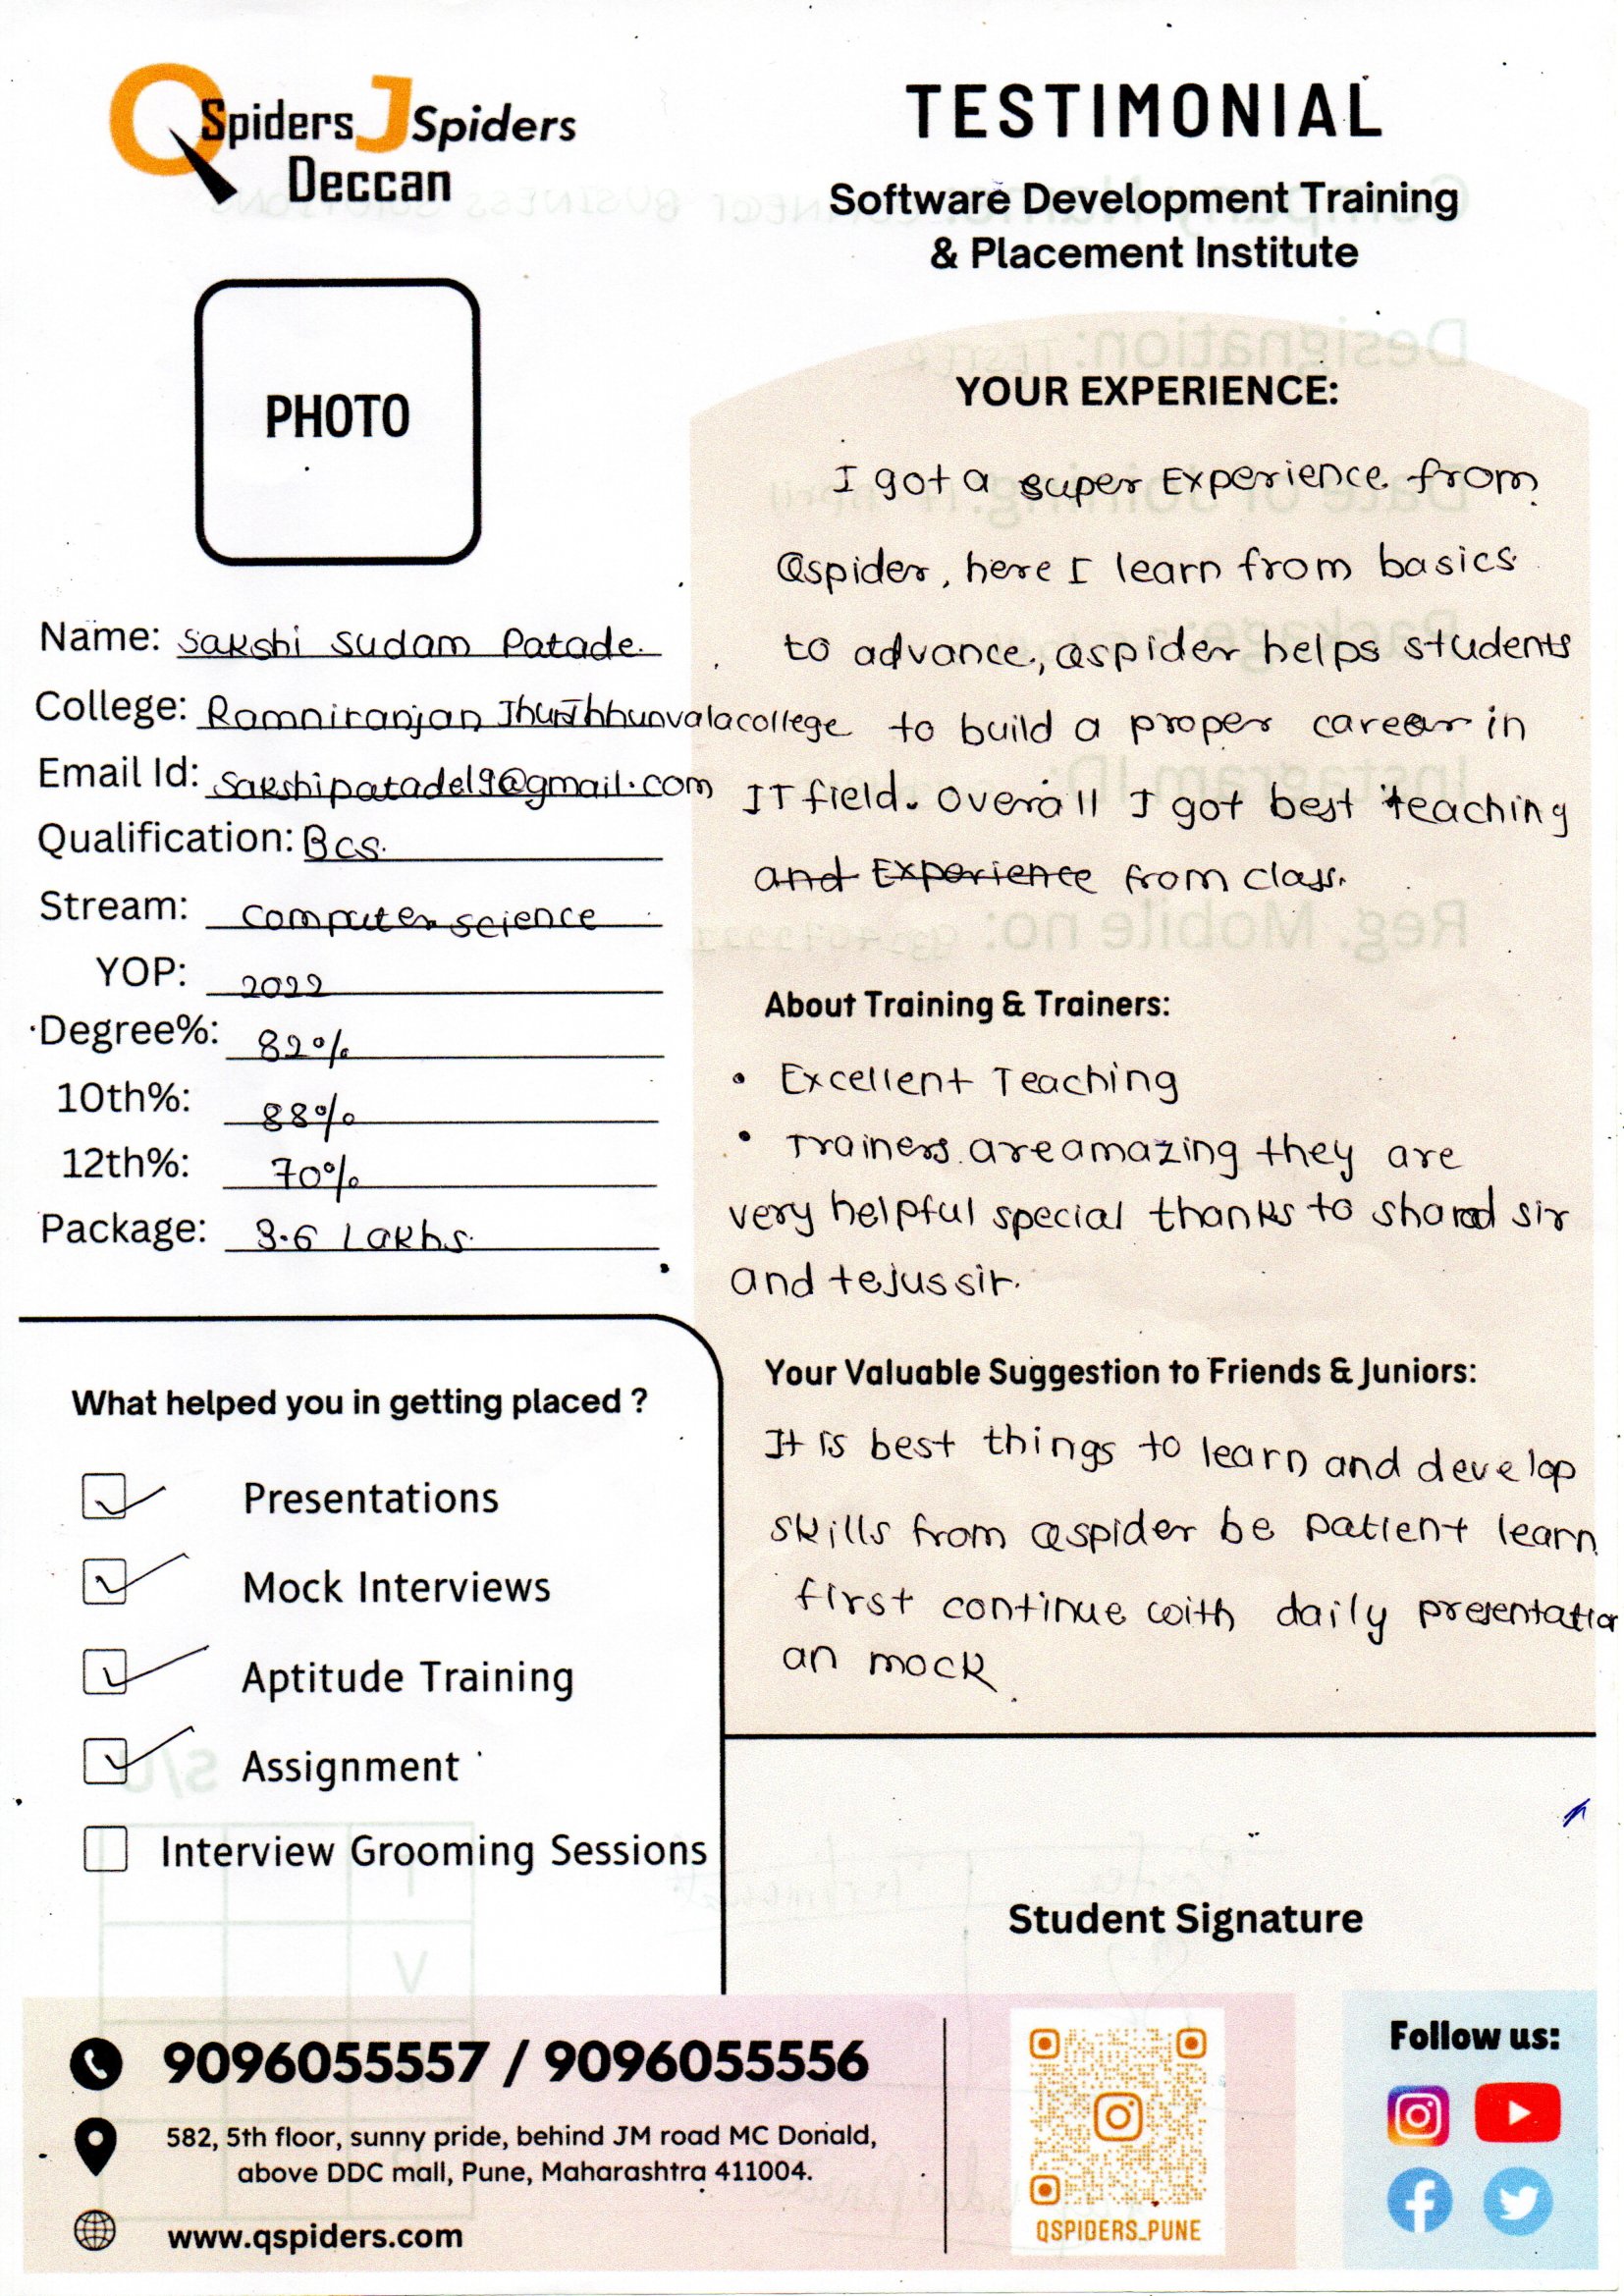 QSpiders JSpiders
Deccan
TESTIMONIAL
Software Development Training
& Placement Institute
PHOTO
Name: Sakshi Sudam Patade.
College: Ramniranjan Jhunjhhunvala college
Email Id: Sakshipatade19@gmail.com
Qualification: Bcs.
Stream: Computer science
YOP: 2022
Degree%: 82%
10th%: 88%
12th%: 70%
Package: 3.6 Lakhs.
What helped you in getting placed ?
Presentations
Mock Interviews
Aptitude Training
Assignment
Interview Grooming Sessions
YOUR EXPERIENCE:
I got a super Experience from
Qspider, here I learn from basics
to advance, Qspider helps students
to build a proper career in
IT field. Overall I got best teaching
and Experience from class.
About Training & Trainers:
• Excellent Teaching
• Trainers are amazing they are
very helpful special thanks to sir
and tejus sir.
Your Valuable Suggestion to Friends & Juniors:
It is best things to learn and develop
skills from Qspider be patient learn
first continue with daily presentation
an mock
Student Signature
9096055557 / 9096055556
582, 5th floor, sunny pride, behind JM road MC Donald,
above DDC mall, Pune, Maharashtra 411004.
www.qspiders.com
QSPIDERS_PUNE
Follow us: